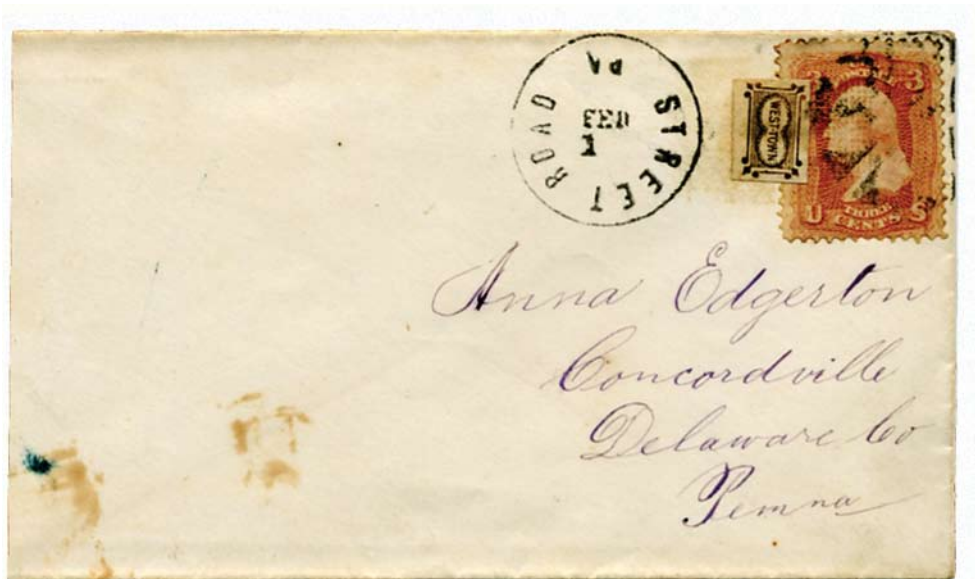 STREET ROAD
PA
FEB
1
WEST-TOWN
3 3
U THREE S
CENTS
Anna Edgerton
Concordville
Delaware Co
Penna